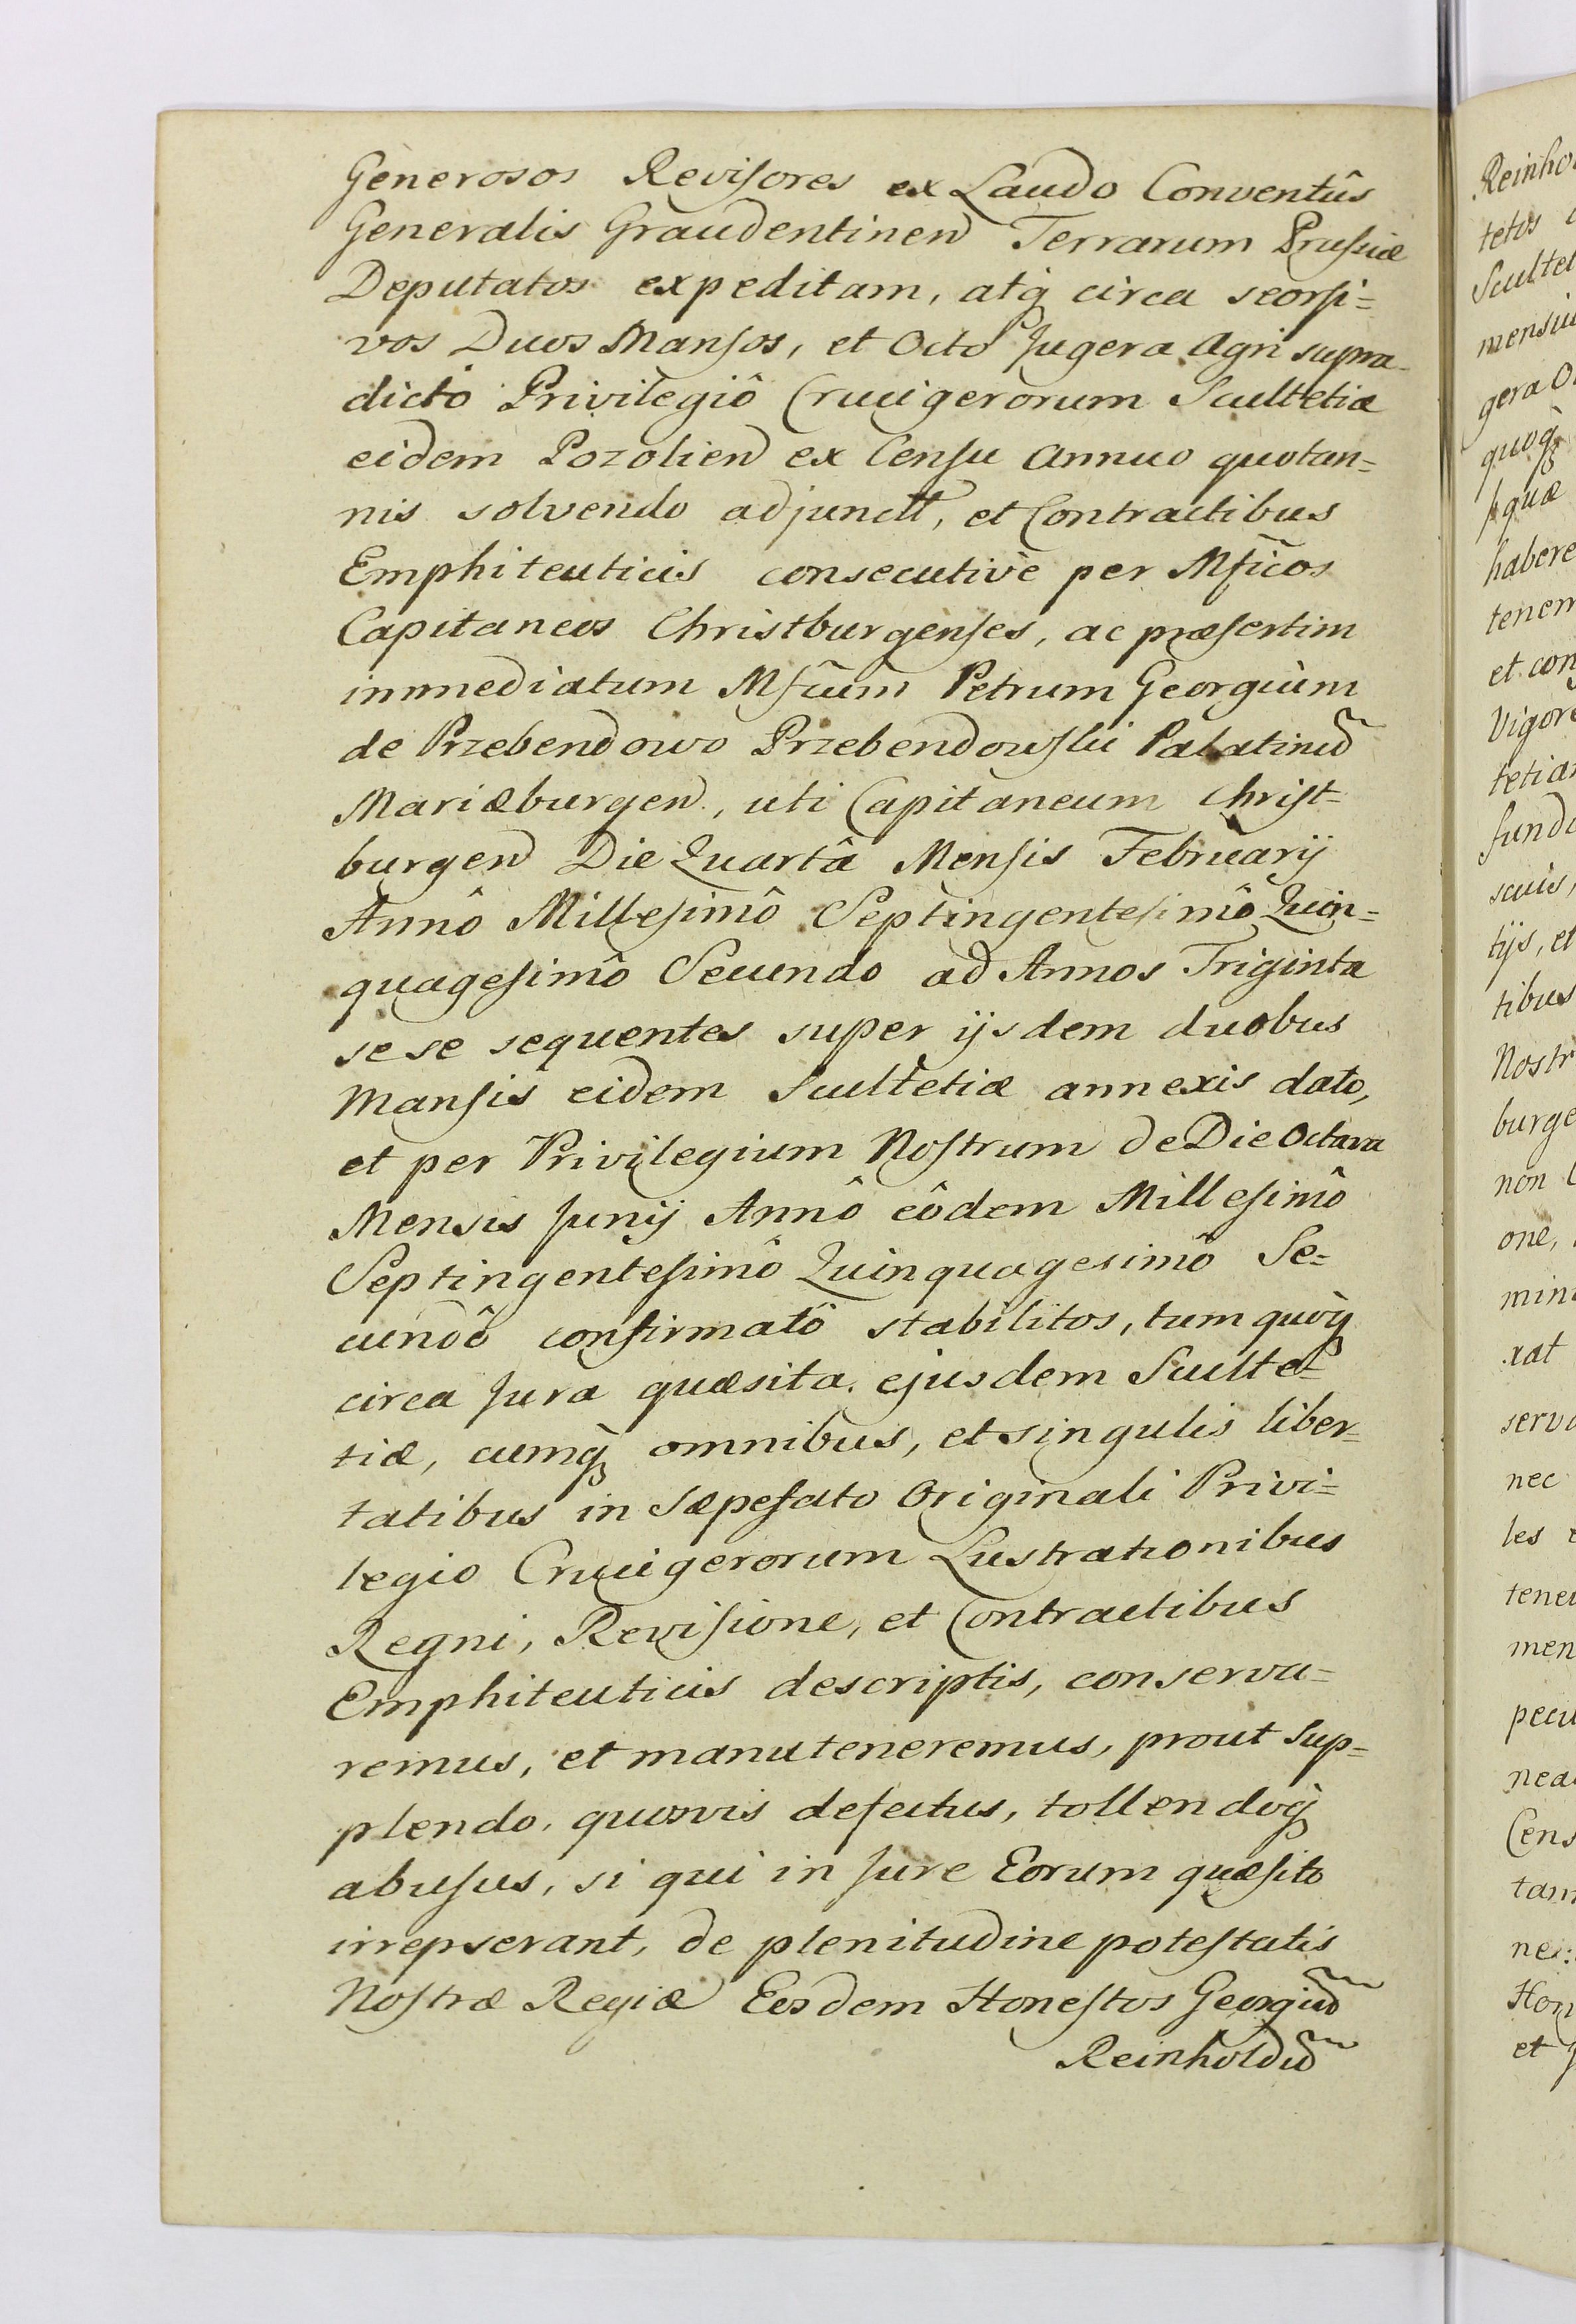 Generosos Revisores ex Laudo Conventûs
Generalis Graudentinen Terrarum Prussiæ
Deputatos expeditam, atq̀ circa seorsi=
vos Duos Mansos, et Octo Jugera Agri supra-
dictô Privilegiô Crucigerorum Scultetiæ
eidem Pozolien ex Censu Annuo quotan=
nis solvendo adjunct, et Contractibus
Emphiteuticis consecutivè per Mficos
Capitaneos Christburgenses, ac præsertim
immediatum Mficum Petrum Georgium
de Przebendowo Przebendowski Palatinũ
Mariæburgen., uti Capitaneum Christ=
burgen Die Quartâ Mensis Februarij
Annô Millesimô Septingentesimô Quin=
quagesimô Secundo ad Annos Triginta
se se sequentes super ijsdem duobus
Mansis eidem Scultetiæ annexis dato,
et per Privilegium Nostrum de Die Octava
Mensis Junij Annô eôdem Millesimô
Septingentesimô Quinquagesimô Se=
cundô confirmatô stabilitos, tum quoq̀
circa Jura quæsita ejusdem Sculte=
tiæ, cumq̀ omnibus, et singulis liber=
tatibus in Sæpefato Originali Privi=
legio Crucigerorum Lustrationibus
Regni, Revisione, et Contractibus
Emphiteuticis descriptis, conserva=
remus, et manuteneremus, prout Sup=
plendo quosvis defectus, tollendoq̀
abusus, si qui in Jure Eorum quæsito
irrepserant, de plenitudine potestatis
Nostræ Regiæ Eosdem Honestos Georgiũ
Reinholdũ
Reinho
tetos
Scultet
mensu
gera O
quoq̀
habere
tenem
et con
Vigore
tetia
fund
scuis,
tijs, et
tibus
Nostr
burge
non
one,
min
xat
serv
nec
les
tene
men
pecu
nea
Cens
tam
nec
Hon
et